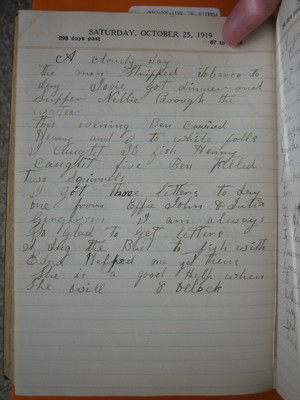 SATURDAY, OCTOBER 25, 1919
298 days past
67 to
A cloudy day
The men Stripped Tobacco to
day Josie got dinner and
Supper Nellie Brough the
water
This evening Ben Carried
Henny and I to white falls
I caught 30 fish Henny
Caught five Ben Killed
two Squirrels
I got three letters to day
one from Effie John &
I am always
So glad to get letters
I dug the Bait to fish with
Edna Helped me get them
She is a good Help when
She will 8 Oclock